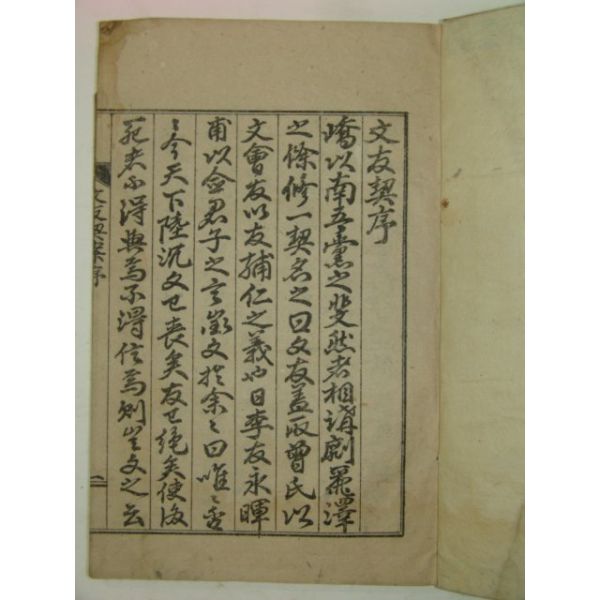 文友契序
嶠以南吾黨之斐然者相講劘麗澤
之條修一契名之曰文友盖取曾氏以
文會友以友輔仁之義也日李友永暉
甫以僉君子之言徵文於余〻曰唯〻否
〻今天下陸沉文已喪矣友已絶矣使後
死者不得與焉不得信焉則豈文之云
文友契案序
一